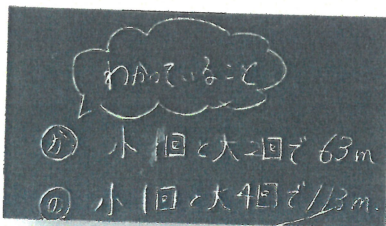 わかっていること
か 小1回と大2回で63m
の 小1回と大4回で113m.